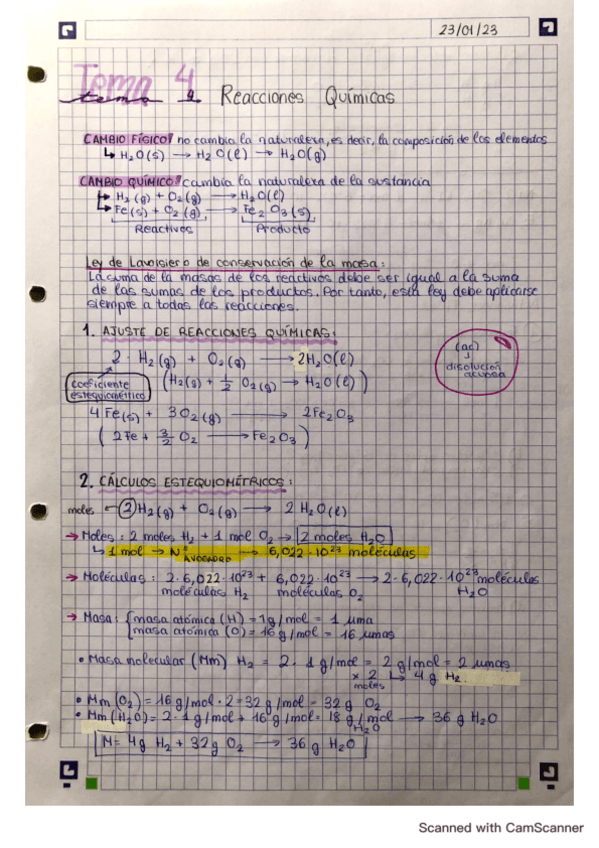 23/01/23
Tema 4
tema 4 Reacciones Químicas
CAMBIO FÍSICO: no cambia la naturaleza, es decir, la composición de los elementos
↳ H₂O(s) → H₂O(l) → H₂O(g)
CAMBIO QUÍMICO: cambia la naturaleza de la sustancia
↳ H₂(g) + O₂(g) → H₂O(l)
↳ Fe(s) + O₂(g) → Fe₂O₃(s)
Reactivos Producto
Ley de Lavoisier o de conservación de la masa:
La suma de la masas de los reactivos debe ser igual a la suma
de las sumas de los productos. Por tanto, esta ley debe aplicarse
siempre a todas las reacciones.
1. AJUSTE DE REACCIONES QUÍMICAS:
2 · H₂(g) + O₂(g) → 2H₂O(l)
(ac)
↓
disolución
acuosa
coeficiente
estequiométrico
(H₂(g) + 1/2 O₂(g) → H₂O(l))
4 Fe(s) + 3O₂(g) → 2Fe₂O₃
(2Fe + 3/2 O₂ → Fe₂O₃)
2. CÁLCULOS ESTEQUIOMÉTRICOS:
moles ← 2 H₂(g) + O₂(g) → 2 H₂O(l)
→ Moles: 2 moles H₂ + 1 mol O₂ → 2 moles H₂O
↳ 1 mol → Nº AVOGADRO → 6,022·10²³ moléculas
→ Moléculas: 2·6,022·10²³ + 6,022·10²³ → 2·6,022·10²³ moléculas
moléculas H₂ moléculas O₂ H₂O
→ Masa: {masa atómica (H) = 1g/mol = 1 uma
masa atómica (O) = 16 g/mol = 16 umas
• Masa molecular (Mm) H₂ = 2 · 1 g/mol = 2 g/mol = 2 umas
x 2 moles ↳ 4 g H₂
• Mm (O₂) = 16 g/mol · 2 = 32 g/mol = 32 g O₂
• Mm (H₂O) = 2 · 1 g/mol + 16 g/mol = 18 g/mol → 36 g H₂O
H₂O
M = 4g H₂ + 32g O₂ → 36 g H₂O
Scanned with CamScanner